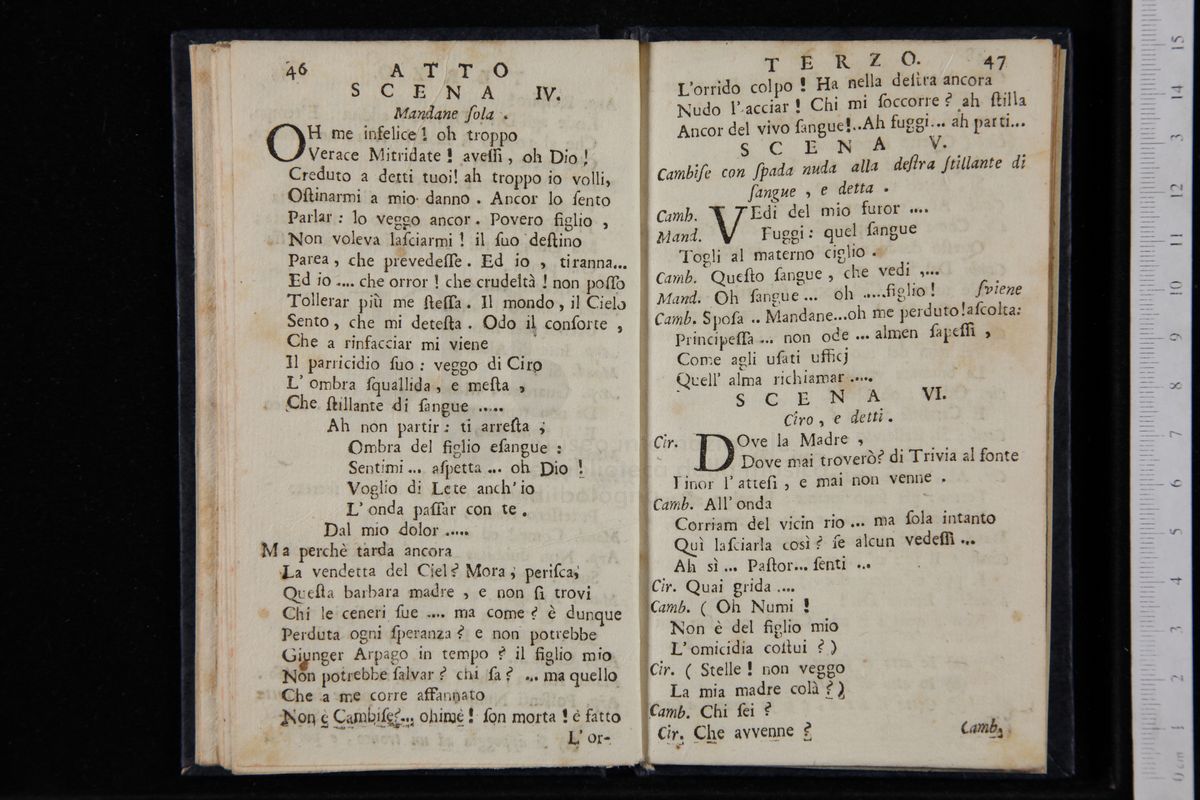 46 ATTO
SCENA IV.
Mandane ſola .
OH me infelice ! oh troppo
Verace Mitridate ! aveſſi , oh Dio !
Creduto a detti tuoi! ah troppo io volli,
Oſtinarmi a mio danno . Ancor lo ſento
Parlar : lo veggo ancor . Povero figlio ,
Non voleva laſciarmi ! il ſuo deſtino
Parea , che prevedeſſe . Ed io , tiranna...
Ed io .... che orror ! che crudeltà ! non poſſo
Tollerar più me ſteſſa . Il mondo , il Cielo
Sento , che mi deteſta . Odo il conſorte ,
Che a rinfacciar mi viene
Il parricidio ſuo : veggo di Ciro
L' ombra ſquallida , e meſta ,
Che ſtillante di ſangue .....
Ah non partir : ti arreſta ;
Ombra del figlio eſangue :
Sentimi ... aſpetta ... oh Dio !
Voglio di Lete anch' io
L' onda paſſar con te .
Dal mio dolor .....
Ma perchè tarda ancora
La vendetta del Ciel ? Mora , periſca,
Queſta barbara madre , e non ſi trovi
Chi le ceneri ſue .... ma come ? è dunque
Perduta ogni ſperanza ? e non potrebbe
Giunger Arpago in tempo ? il figlio mio
Non potrebbe ſalvar ? chi ſa ? ... ma quello
Che a me corre affannato
Non è Cambiſe?... ohimè ! ſon morta ! è fatto
L' or-
TERZO. 47
L'orrido colpo ! Ha nella deſtra ancora
Nudo l' acciar ! Chi mi ſoccorre ? ah ſtilla
Ancor del vivo ſangue!..Ah fuggi... ah parti...
SCENA V.
Cambiſe con ſpada nuda alla deſtra ſtillante di
ſangue , e detta .
Camb. VEdi del mio furor ....
Mand. Fuggi : quel ſangue
Togli al materno ciglio .
Camb. Queſto ſangue , che vedi ,...
Mand. Oh ſangue ... oh .....figlio ! ſviene
Camb. Spoſa .. Mandane...oh me perduto!aſcolta:
Principeſſa ... non ode ... almen ſapeſſi ,
Come agli uſati ufficj
Quell' alma richiamar .....
SCENA VI.
Ciro , e detti .
Cir. DOve la Madre ,
Dove mai troverò? di Trivia al fonte
Finor l' atteſi , e mai non venne .
Camb. All' onda
Corriam del vicin rio ... ma ſola intanto
Quì laſciarla così ? ſe alcun vedeſſi ...
Ah sì ... Paſtor... ſenti ...
Cir. Quai grida ....
Camb. ( Oh Numi !
Non è del figlio mio
L' omicidia coſtui ? )
Cir. ( Stelle ! non veggo
La mia madre colà ? )
Camb. Chi ſei ?
Cir. Che avvenne ?
Camb.